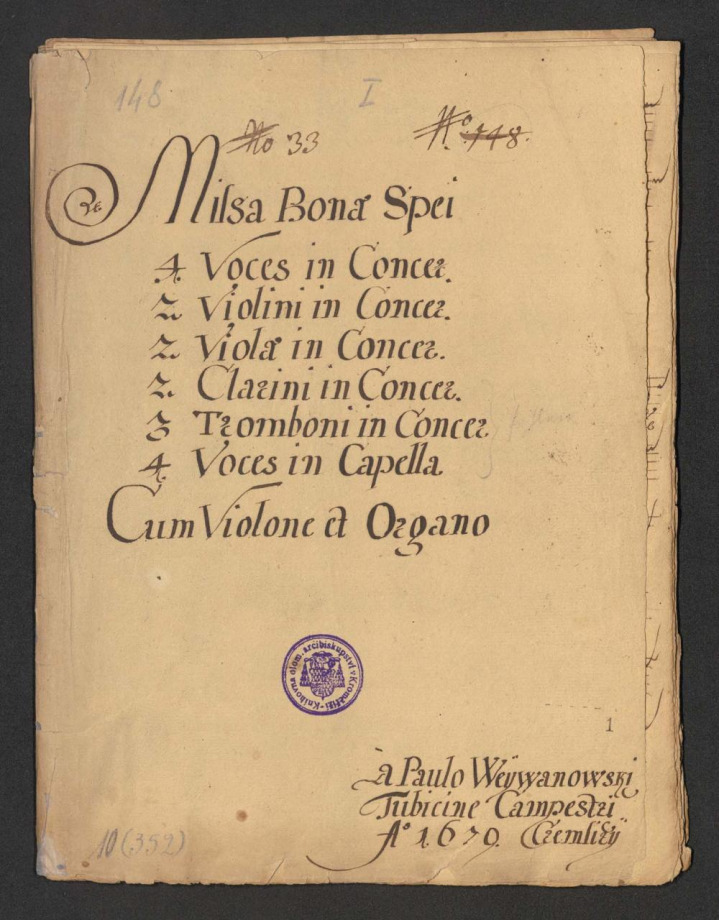 148 I
No 33 No. 748.
Re Missa Bonæ Spei
4. Voces in Concer.
2. Violini in Concer.
2. Violæ in Concer.
2. Clarini in Concer.
3 Tromboni in Concer
4. Voces in Capella
Cum Violone et Organo
Knihovna olom. arcibiskupství v Kroměříži
1
à Paulo Weÿwanowskj
Tubicine Campestri
Aº 1670. Cremsirÿ
10 (352)